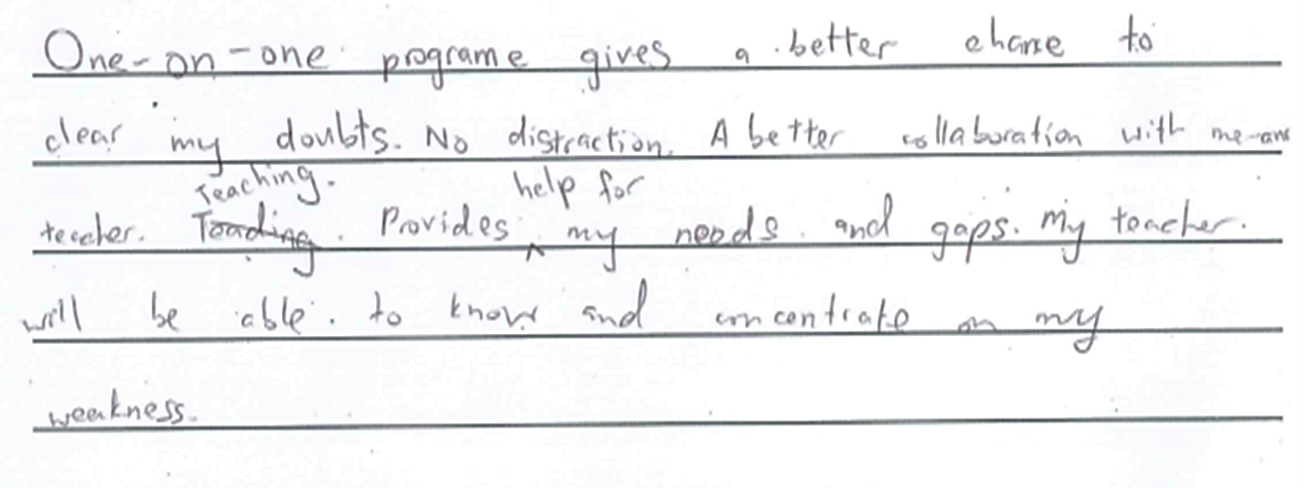 One-on-one programe gives a better chance to
clear my doubts. No distraction. A better collaboration with me and
teacher. Teaching. Provides help for my needs and gaps. My teacher
will be able to know and concentrate on my
weakness.